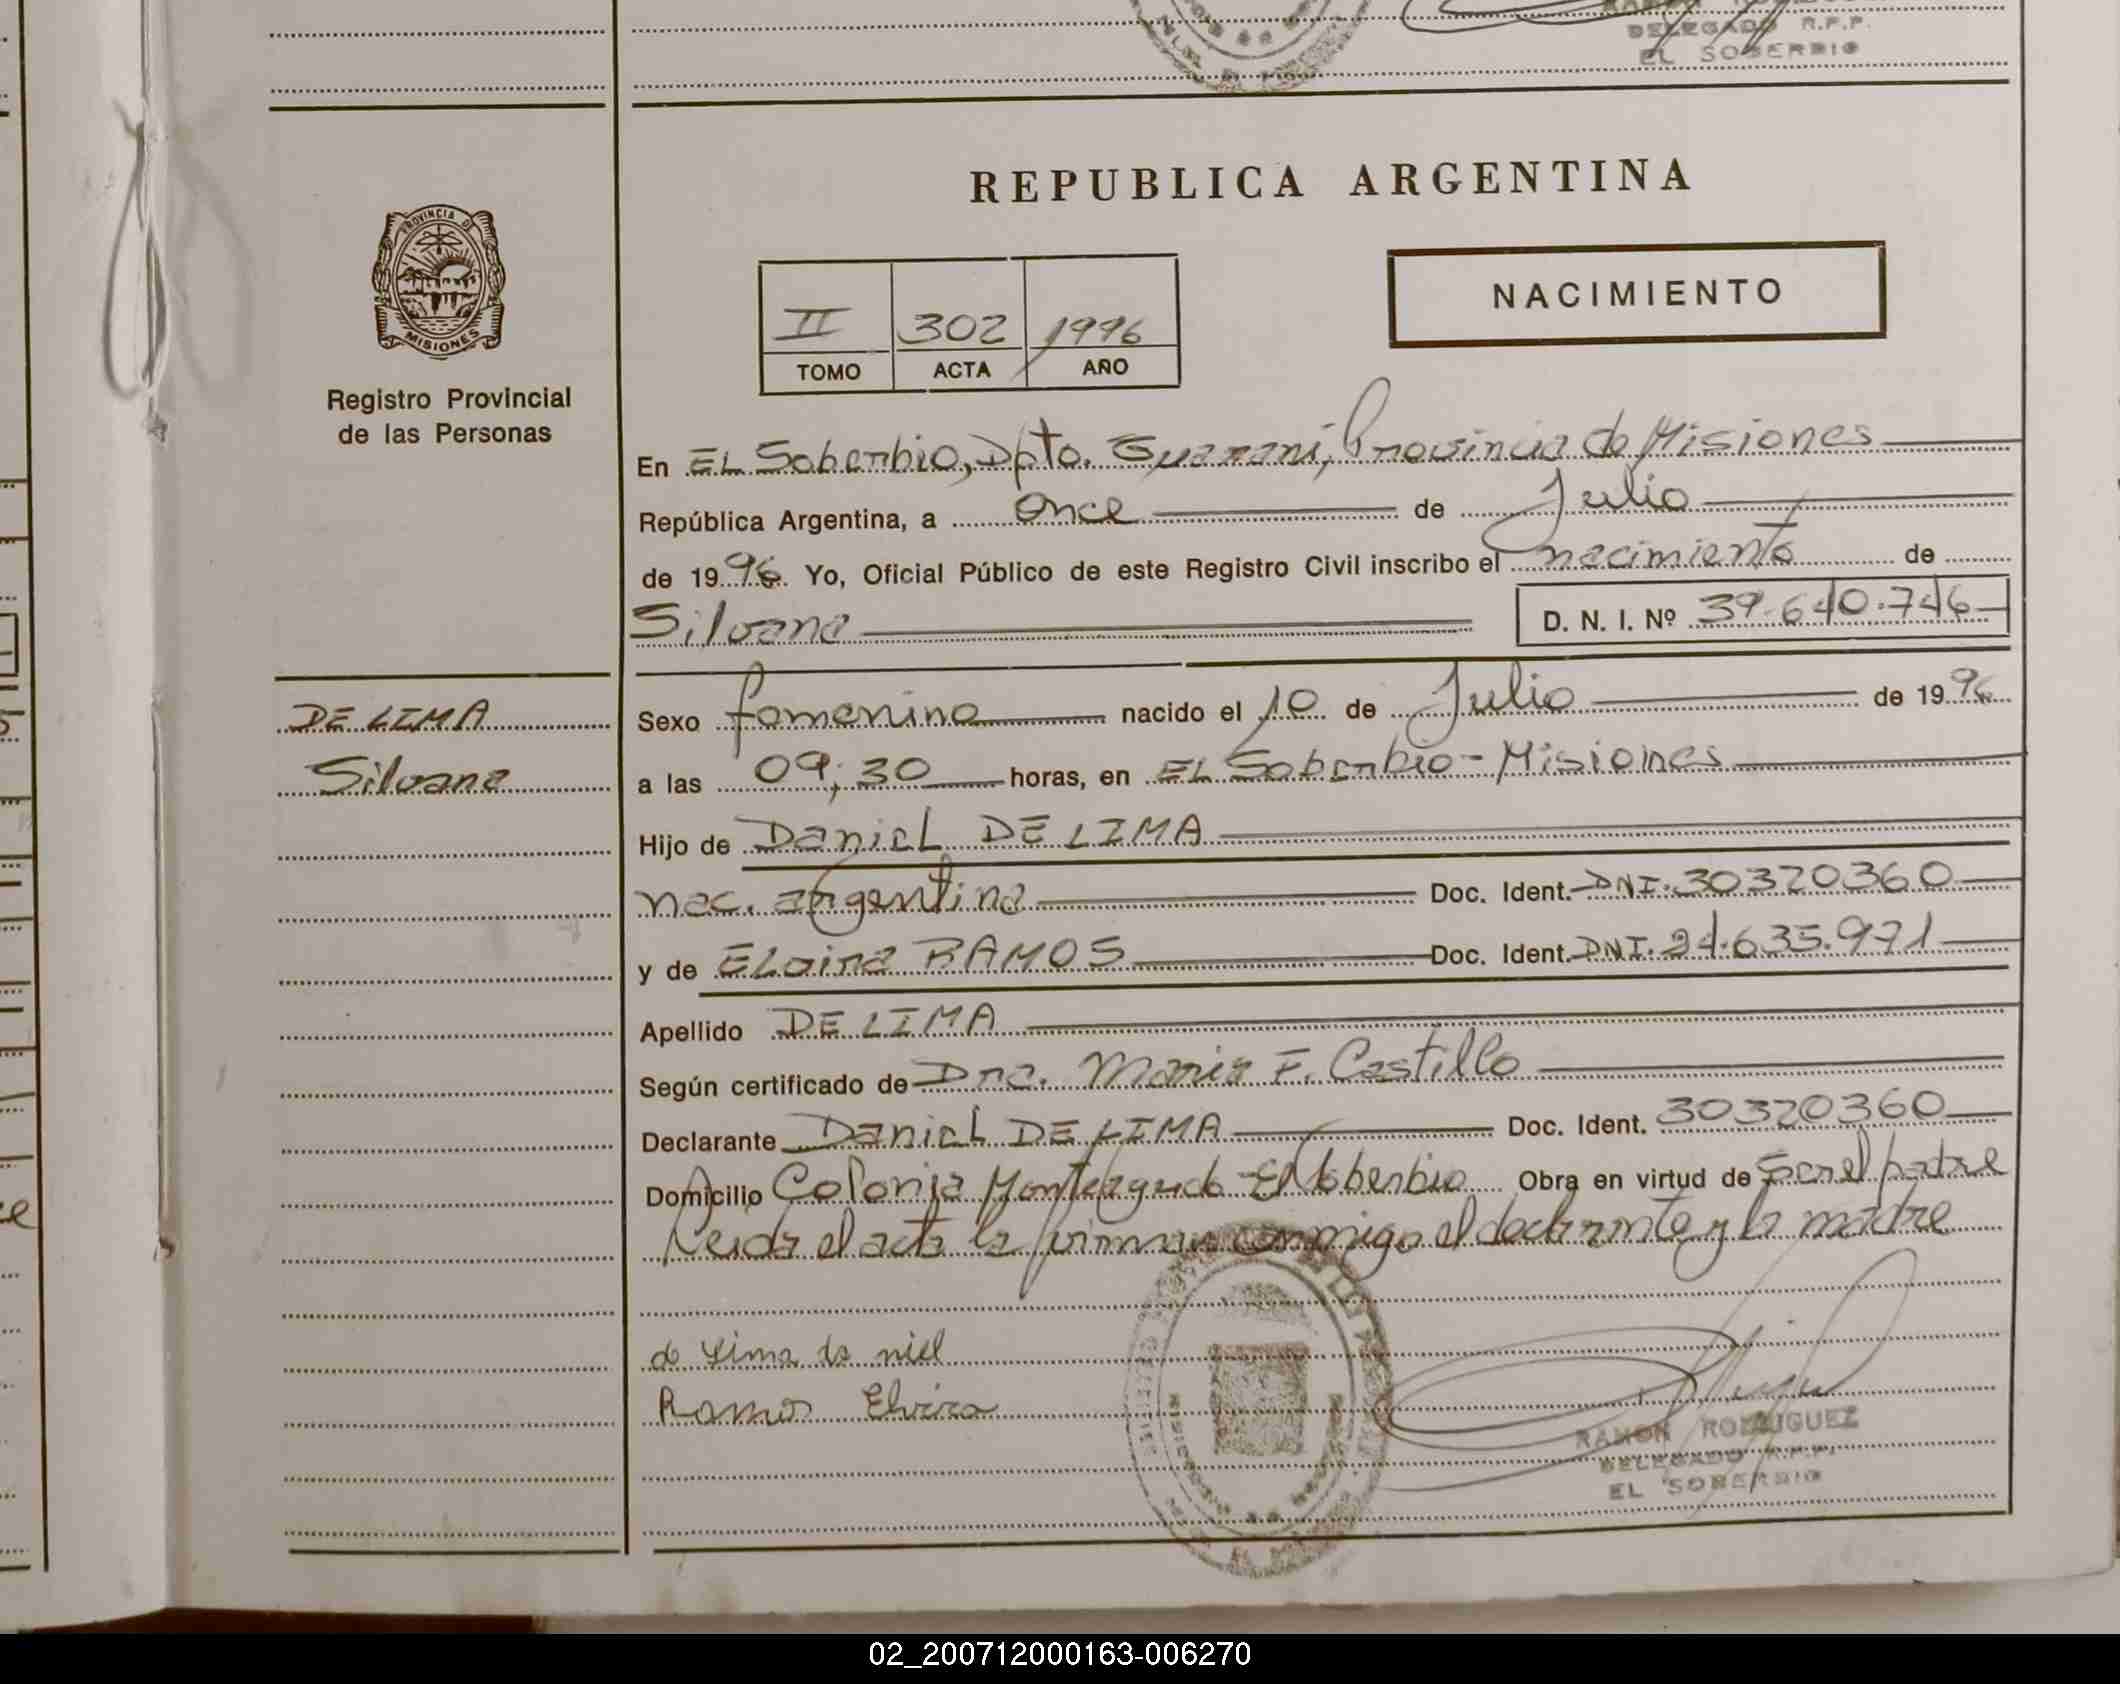 DELEGADO R.P.P.
EL SOBERBIO
PROVINCIA DE
MISIONES
Registro Provincial
de las Personas
REPUBLICA ARGENTINA
NACIMIENTO
II 302 1996
TOMO ACTA AÑO
En EL Soberbio, Dpto. Guarani, Provincia de Misiones
República Argentina, a once de Julio
de 1996 Yo, Oficial Público de este Registro Civil inscribo el nacimiento de
Silvana D. N. I. Nº 39.640.746
DE LIMA
Silvana
Sexo femenino nacido el 10 de Julio de 1996
a las 09;30 horas, en EL Soberbio - Misiones
Hijo de Daniel DE LIMA
nac. argentina Doc. Ident. DNI. 30320360
y de ELvira RAMOS Doc. Ident. DNI. 24.635.971
Apellido DE LIMA
Según certificado de Dra. Maria F. Castillo
Declarante Daniel DE LIMA Doc. Ident. 30320360
Domicilio Colonia Monteagudo - El Soberbio Obra en virtud de ser el padre
Leida el acta la firman conmigo el declarante y la madre
de Lima da niel
Ramos Elvira
RAMON RODRIGUEZ
DELEGADO R.P.P.
EL SOBERBIO
02_200712000163-006270